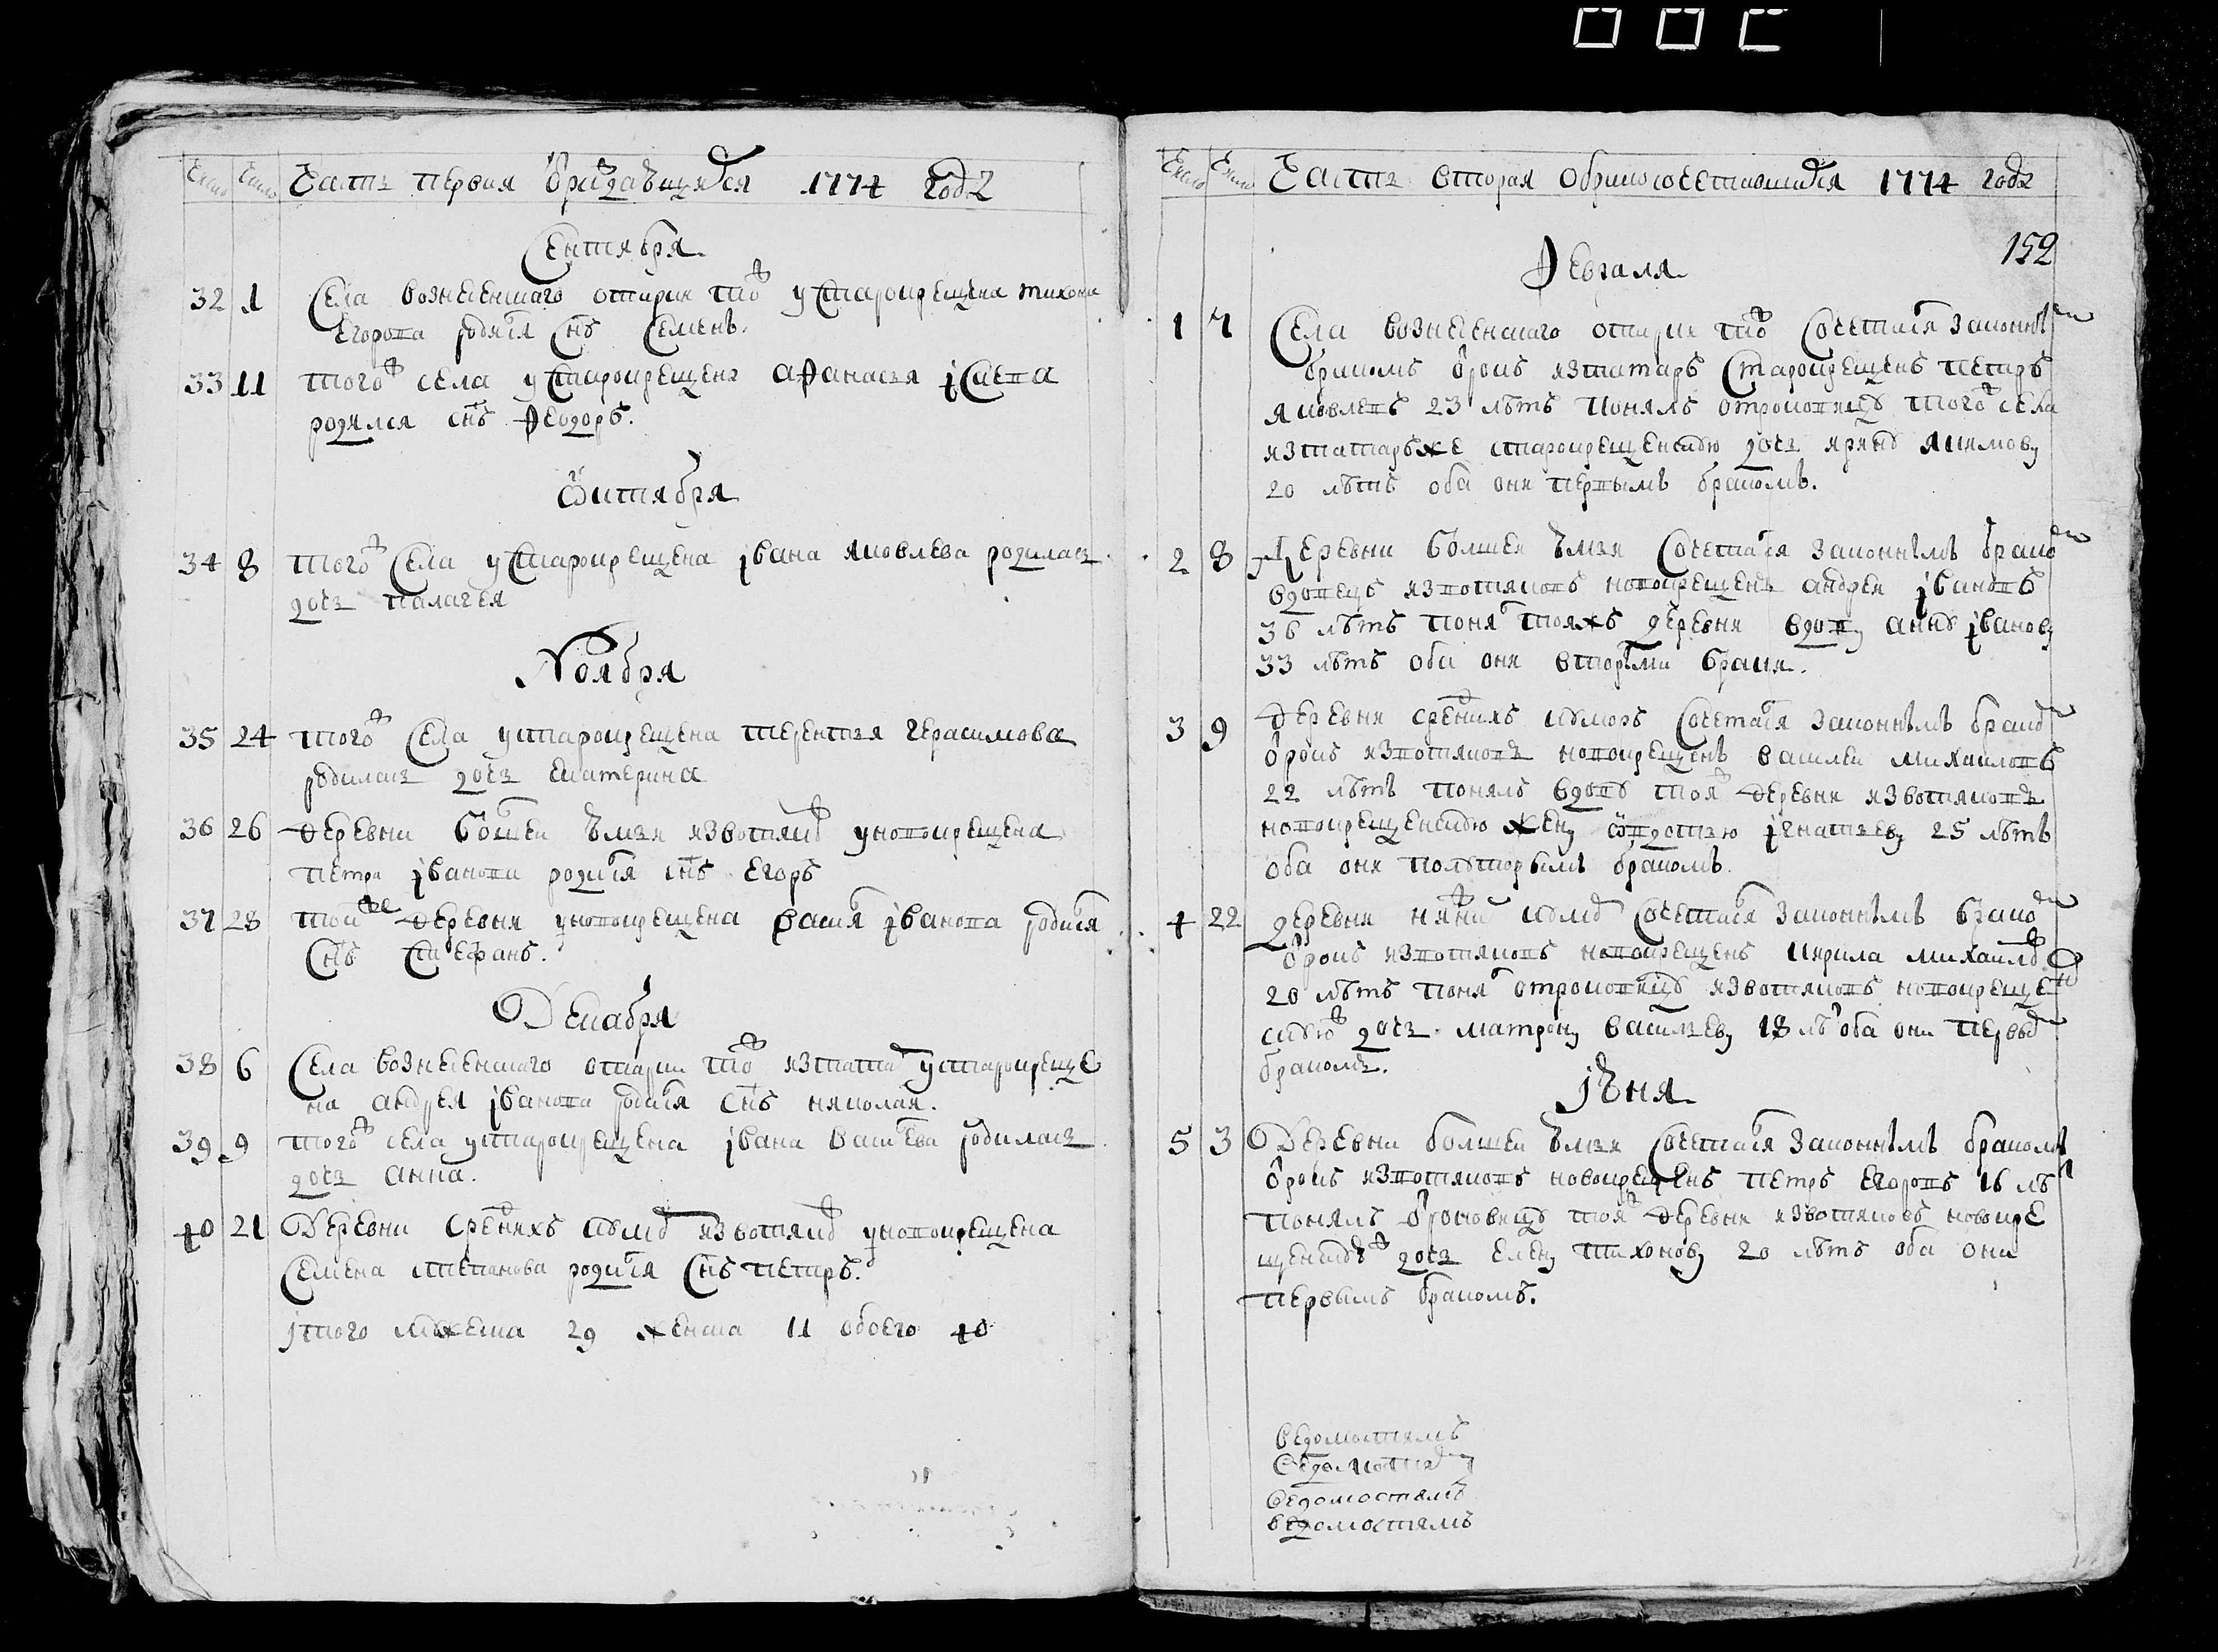 Число Число Часть первая О раждающихся 1774 год
Сентября
32 1 Села вознесенскаго старик тож у старокрещена тихона
Егорова родился Снъ Семенъ.
33 11 того ж села у Старокрещена афанасья
родился снъ Феодоръ.
Октября
34 8 того ж Села у Старокрещена іѵана яковлева родилась
дочь палагея
Ноября
35 24 того ж Села у старокрещена терентья герасимова
родилась дочь Екатерина
36 26 деревни болшей извотяков у новокрещена
петра іванова родился снъ Егоръ
37 28 тойже деревни у новокрещена васил іванова родился
Снъ Стефанъ.
Декабря
38 6 Села вознесенскаго тож изтатар у старокреще
на андрея іванова родился снъ николай.
39 9 того ж села у старокрещена івана васильева родилась
дочь анна.
40 21 Деревни средних извотяков у новокрещена
Семена степанова родился Снъ петръ.
итого мужеска 29 женска 11 обоего 40
Число Число Часть вторая О бракосочетавшихся 1774 годъ
152
Февраля
1 7 Села вознесенскаго тож Сочетался законным
бракомъ отрокъ изтатаръ Старокрещенъ петръ
яковлевъ 23 лѣтъ понялъ отроковицу того ж села
изтатаръ же старокрещенскую дочь якимову
20 лѣтъ оба они первымъ бракомъ.
2 8 Деревни болшей Сочетался законнымъ брако
вдовецъ извотяковъ новокрещенъ андрей івановъ
36 лѣтъ поня тояжъ деревни вдову анну іванову
33 лѣтъ оба они вторыми браки.
3 9 Деревни средних Сочетался законнымъ брако
отрокъ извотяковъ новокрещенъ василей михаиловъ
22 лѣтъ понялъ вдову тоя ж деревни извотяковъ
новокрещенскую жену авдотью ігнатьеву 25 лѣтъ
оба они полуторымъ бракомъ.
4 22 деревни Сочетался законнымъ брако
отрокъ извотяковъ новокрещенъ кирила михаилов
20 лѣтъ поня отроковицу извотяковъ новокрещен
скую ж дочь матрону васильеву 18 лѣ оба они первы
бракомъ.
іюня
5 3 Деревни болшей Сочетался законнымъ бракомъ
отрокъ извотяковъ новокрещенъ петръ Егоровъ 16 лѣ
понялъ отроковицу тоя ж деревни извотяковъ новокре
щенскую ж дочь Елену тихонову 20 лѣтъ оба они
первымъ бракомъ.
ведомостямъ
ведомостям
ведомостямъ
ведомостямъ